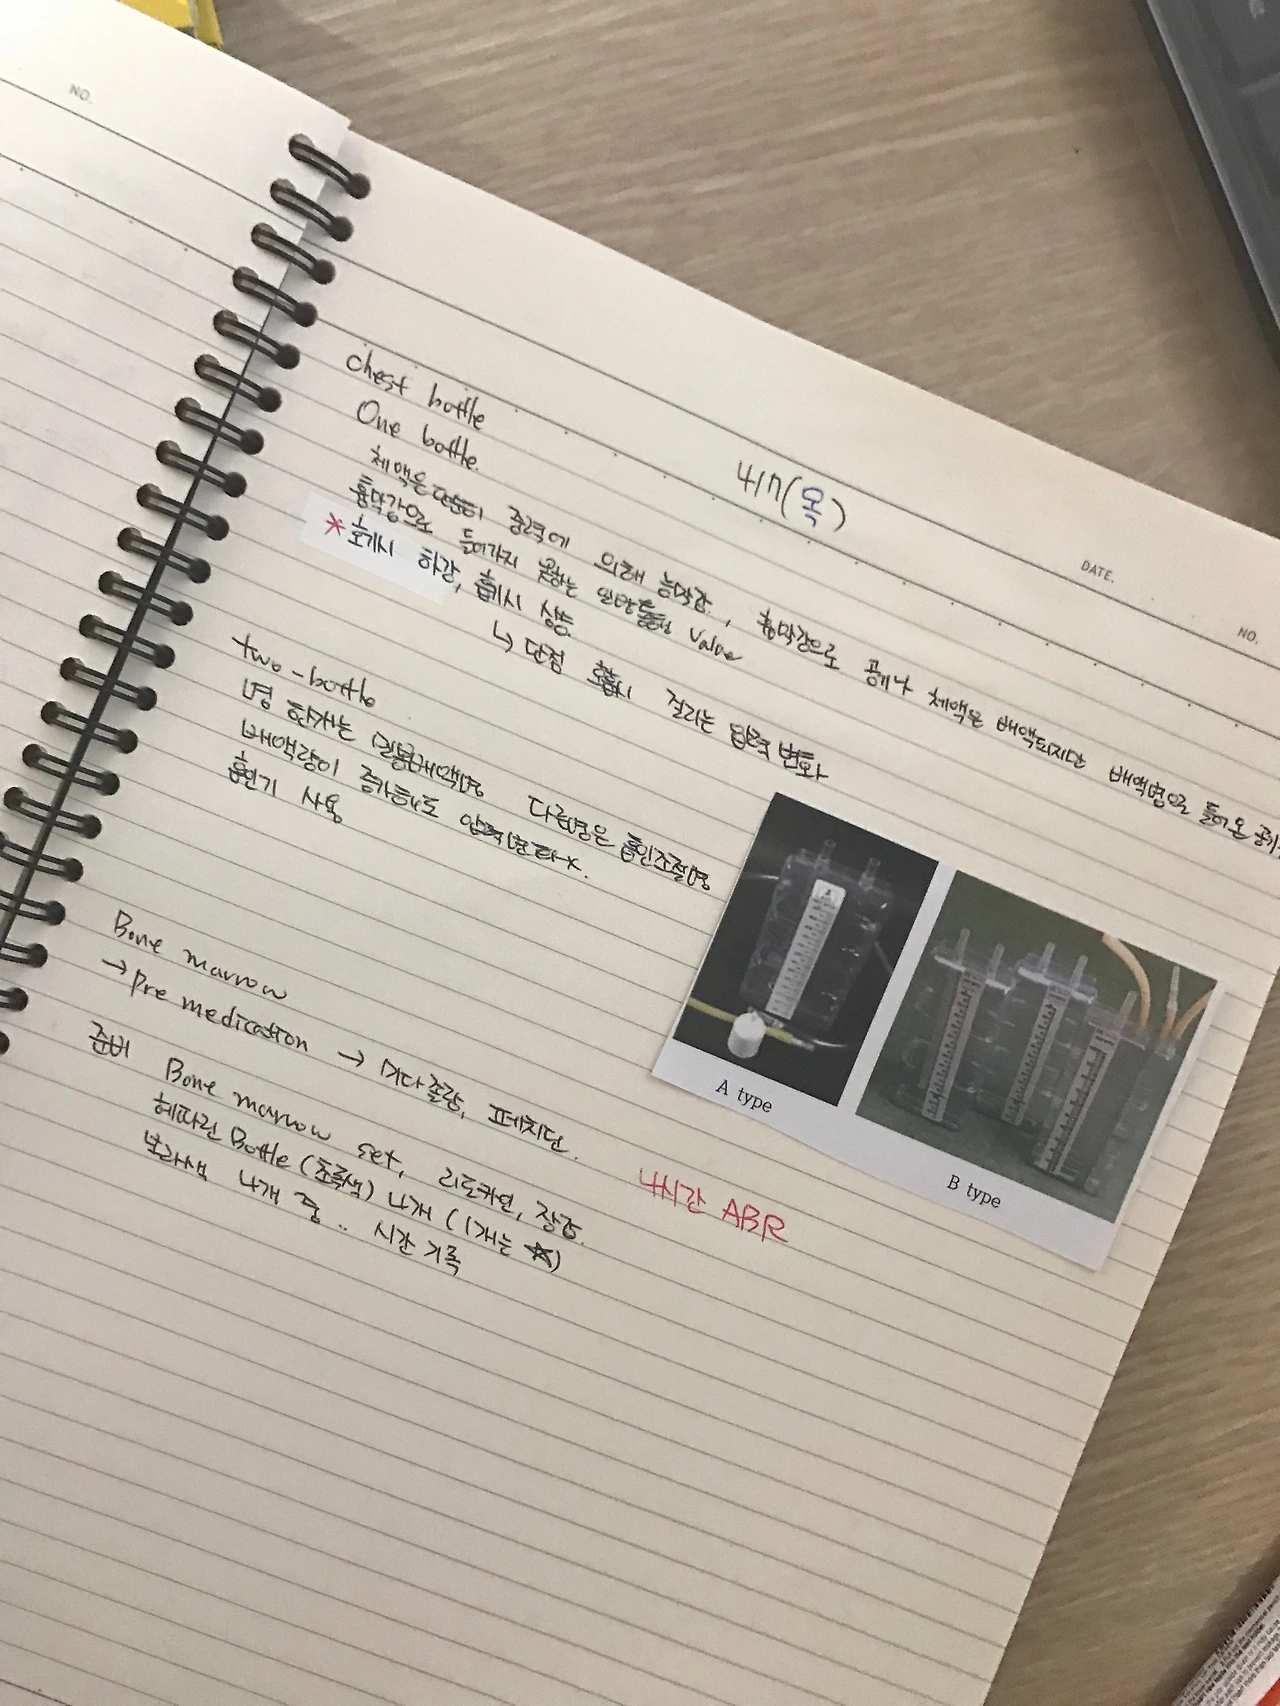 NO.
DATE.
NO.
4/7(목)
chest bottle
One bottle.
체액은 단순히 중력에 의해 농막강, 흉막강으로 공기나 체액은 배액되지만 배액병으로 들어온 공기
흉막강으로 들어가지 못하는 일방통행 Value
*호기시 하강, 흡기시 상승
↳ 단점 호흡시 걸리는 압력 변화
two-bottle
병 한개는 밀봉배액병 다른병은 흡인조절병
배액량이 증가해도 압력변화x.
흡인기 사용
A type
B type
Bone marrow
→ Pre medication → 미다졸람, 페치딘.
4시간 ABR
준비 Bone marrow set, 리도카인, 장갑.
헤파린 Bottle (초록색) 4개 (1개는 ☆)
보라색 4개 중.. 시간 기록